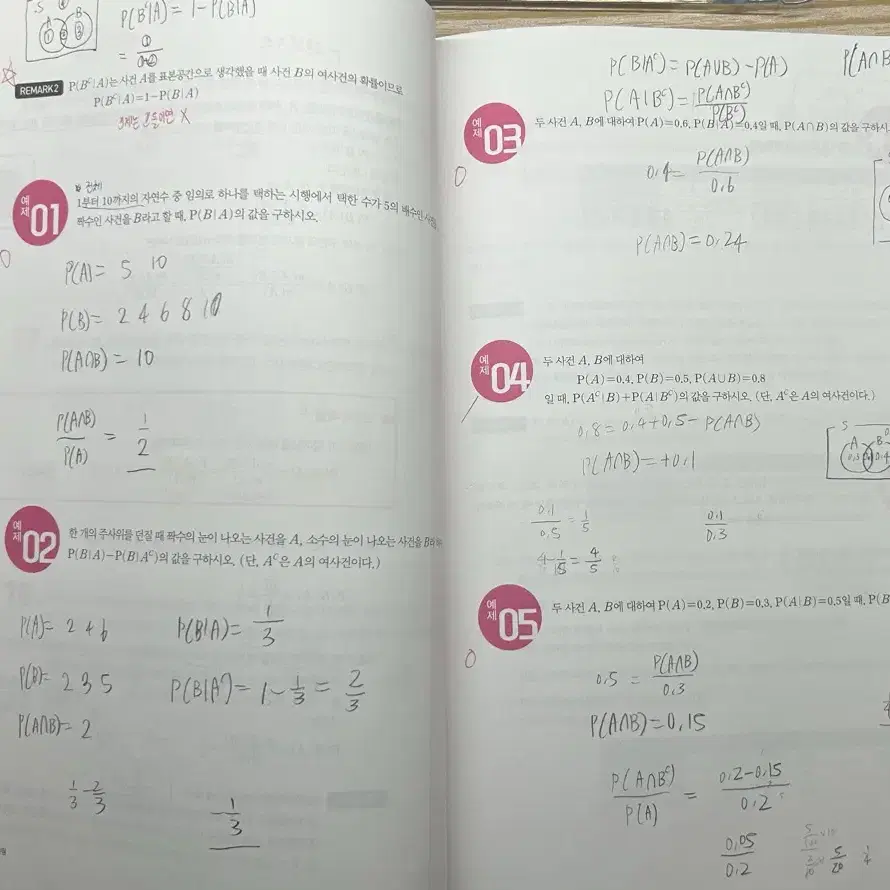 S
A B
P(Bᶜ|A) = 1-P(B|A)
= ①/①+②
REMARK2 P(Bᶜ|A)는 사건 A를 표본공간으로 생각했을 때 사건 B의 여사건의 확률이므로
P(Bᶜ|A)=1-P(B|A)
예제 01
전체
1부터 10까지의 자연수 중 임의로 하나를 택하는 시행에서 택한 수가 5의 배수인
짝수인 사건을 B라고 할 때, P(B|A)의 값을 구하시오.
P(A)= 5 10
P(B)= 2 4 6 8 10
P(A∩B) = 10
P(A∩B)/P(A) = 1/2
예제 02
한 개의 주사위를 던질 때 짝수의 눈이 나오는 사건을 A, 소수의 눈이 나오는 사건을
P(B|A)-P(B|Aᶜ)의 값을 구하시오. (단, Aᶜ은 A의 여사건이다.)
P(A)= 2 4 6 P(B|A)= 1/3
P(B)= 2 3 5 P(B|Aᶜ)= 1-1/3 = 2/3
P(A∩B)= 2
1/3-2/3
-1/3
P(B|Aᶜ)= P(A∪B)-P(A)
P(A|Bᶜ)= P(A∩Bᶜ)/P(Bᶜ)
예제 03
두 사건 A, B에 대하여 P(A)=0.6, P(B|A)=0.4일 때, P(A∩B)의 값을 구하시
0.4= P(A∩B)/0.6
P(A∩B)=0.24
예제 04
두 사건 A, B에 대하여
P(A)=0.4, P(B)=0.5, P(A∪B)=0.8
일 때, P(Aᶜ|B)+P(A|Bᶜ)의 값을 구하시오. (단, Aᶜ은 A의 여사건이다.)
0.8=0.4+0.5- P(A∩B)
P(A∩B)=+0.1
S
A B
0.1/0.5 = 1/5 0.1/0.3
= 4/5
예제 05
두 사건 A, B에 대하여 P(A)=0.2, P(B)=0.3, P(A|B)=0.5일 때,
0.5 = P(A∩B)/0.3
P(A∩B)=0.15
P(A∩Bᶜ)/P(A) = 0.2-0.15/0.2
0.05/0.2 5/20 1/4